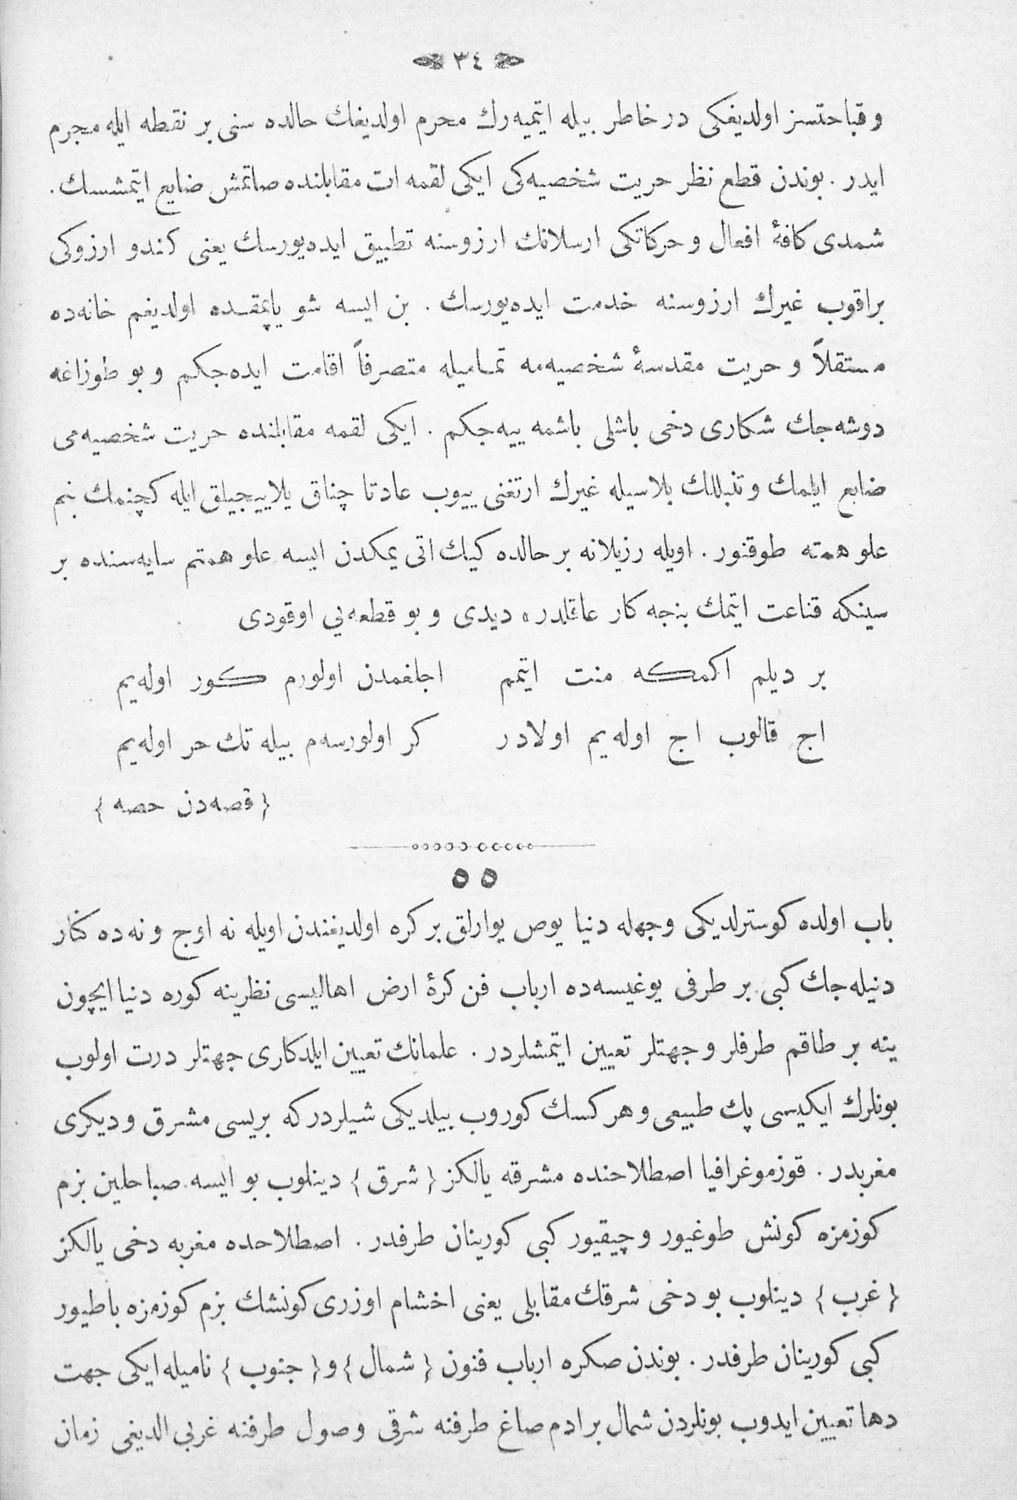 ٣٤
و قباحتسز اولديغكى در خاطر بيله ايتميه‌رك محرم اولديغك حالده سنى بر نقطه ايله مجرم
ايدر . بوندن قطع نظر حريت شخصيه‌كى ايكى لقمه ات مقابلنده صاتمش ضايع ايتمشسك .
شمدى كافهٔ افعال و حركاتكى ارسلانك ارزوسنه تطبيق ايده‌يورسك يعنى كندو ارزوكى
براقوب غيرك ارزوسنه خدمت ايده‌يورسك . بن ايسه شو ياپمقده اولديغم خانه‌ده
مستقلاً و حريت مقدسهٔ شخصيه‌مه تماميله متصرفاً اقامت ايده‌جكم و بو طوزاغه
دوشه‌جك شكارى دخى باشلى باشمه ييه‌جكم . ايكى لقمه مقابلنده حريت شخصيه‌مى
ضايع ايلمك و تنبللك بلاسيله غيرك ارتغنى ييوب عادتا چناق يلاييجيلق ايله كچنمك بنم
علو همته طوقنور . اويله رزيلانه بر حالده كيك اتى يمكدن ايسه علو همتم سايه‌سنده بر
سينكه قناعت ايتمك بنجه كار عاقلدر » ديدى و بو قطعه‌يى اوقودى
بر ديلم اكمكه منت ايتمم     اجلغمدن اولورم كور اوله‌يم
اج قالوب اج اوله‌يم اولادر     كر اولورسه‌م بيله تك حر اوله‌يم
{ قصه‌دن حصه }
٥٥
باب اولده كوسترلديكى وجهله دنيا يوص يوارلق بر كره اولديغندن اويله نه اوج و نه ده كنار
دنيله‌جك كبى بر طرفى يوغيسه‌ده ارباب فن كرهٔ ارض اهاليسى نظرينه كوره دنيا ايچون
ينه بر طاقم طرفلر و جهتلر تعيين ايتمشلردر . علمانك تعيين ايلدكارى جهتلر درت اولوب
بونلرك ايكيسى پك طبيعى و هر كسك كوروب بيلديكى شيلردركه بريسى مشرق و ديكرى
مغربدر . قوزموغرافيا اصطلاحنده مشرقه يالكز { شرق } دينلوب بو ايسه صباحلين بزم
كوزمزه كونش طوغيور و چيقيور كبى كورينان طرفدر . اصطلاحده مغربه دخى يالكز
{ غرب } دينلوب بو دخى شرقك مقابلى يعنى اخشام اوزرى كونشك بزم كوزمزه باطيور
كبى كورينان طرفدر . بوندن صكره ارباب فنون { شمال } و { جنوب } ناميله ايكى جهت
دها تعيين ايدوب بونلردن شمال بر ادم صاغ طرفنه شرقى و صول طرفنه غربى الديغى زمان